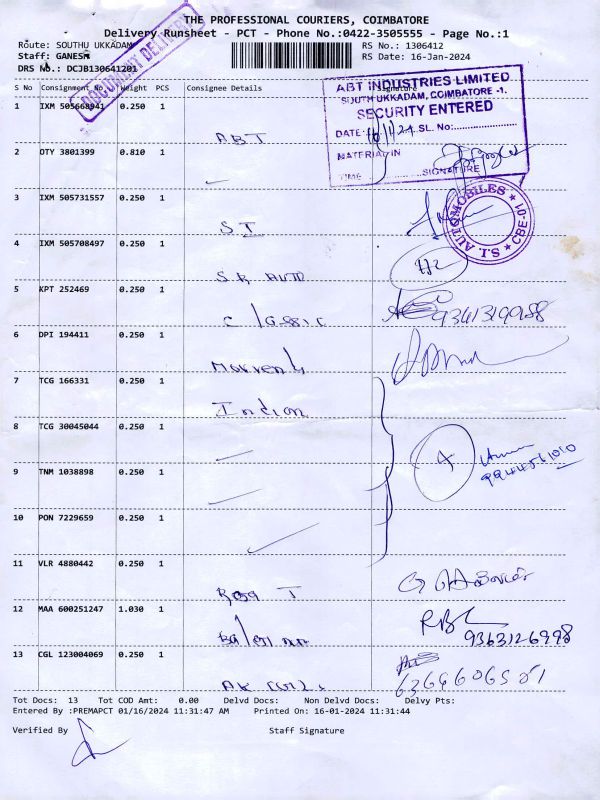 THE PROFESSIONAL COURIERS, COIMBATORE
Delivery Runsheet - PCT - Phone No.:0422-3505555 - Page No.:1
Route: SOUTHU UKKADAM
RS No.: 1306412
Staff: GANESH
RS Date: 16-Jan-2024
DRS No.: DCJB130641201
DOCUMENT DELIVERY
S No Consignment No. Weight PCS Consignee Details Signature
ABT INDUSTRIES LIMITED
SOUTH UKKADAM, COIMBATORE -1.
SECURITY ENTERED
DATE: 16/1/24 SL. No:
MATERIAL IN
TIME SIGNATURE
1 IXM 505668941 0.250 1 ABT
2 OTY 3801399 0.810 1
3 IXM 505731557 0.250 1 S I
S.I. AUTOMOBILES ★ CBE-01 ★
4 IXM 505708497 0.250 1 S R AUTO
5 KPT 252469 0.250 1 Classic 9341319988
6 DPI 194411 0.250 1
7 TCG 166331 0.250 1 Indian
8 TCG 30045044 0.250 1
9 TNM 1038898 0.250 1
10 PON 7229659 0.250 1
11 VLR 4880442 0.250 1
12 MAA 600251247 1.030 1 9363126998
13 CGL 123004069 0.250 1
Tot Docs: 13 Tot COD Amt: 0.00 Delvd Docs: Non Delvd Docs: Delvy Pts:
Entered By :PREMAPCT 01/16/2024 11:31:47 AM Printed On: 16-01-2024 11:31:44
Verified By Staff Signature